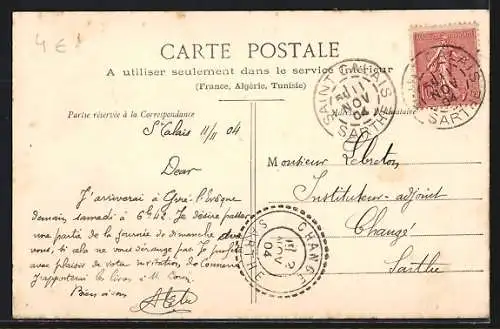 4 €
CARTE POSTALE
A utiliser seulement dans le service intérieur
(France, Algérie, Tunisie)
Partie réservée à la Correspondance
St Calais 11/11 04
Dear
J'arriverai à
demain samedi à 6h42. Je désire passer
une partie de la journée de dimanche avec
vous, si cela ne vous dérange pas. Je profite
avec plaisir de votre invitation,
J'apporterai les livres à M.
Bien à vous
Monsieur Lebreton
Instituteur-adjoint
Changé
Sarthe
SAINT-CALAIS
11
NOV
04
SARTHE
CALAIS
NOV
04
SARTHE
CHANGÉ
12
NOV
04
SARTHE